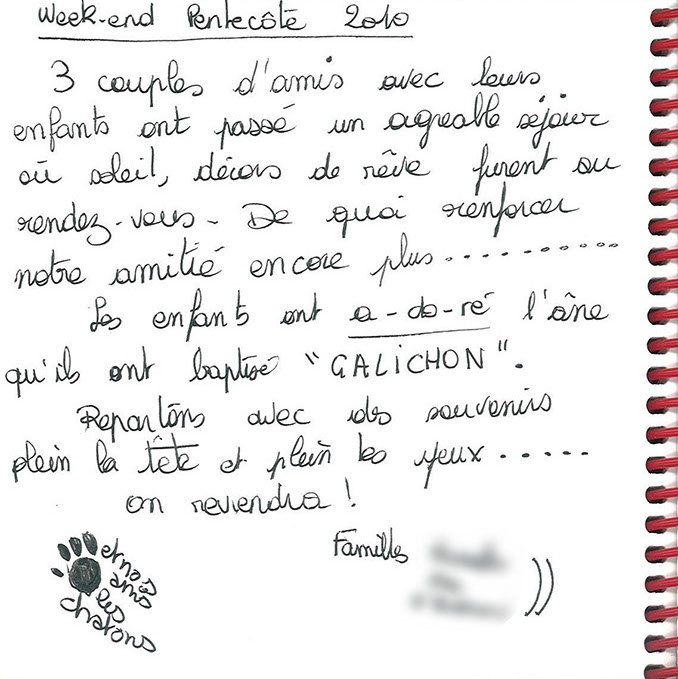 Week-end Pentecôte 2010
3 couples d'amis avec leurs
enfants ont passé un agreable séjour
où soleil, décors de rêve furent au
rendez-vous - De quoi renforcer
notre amitié encore plus...........
Les enfants ont a-do-ré l'âne
qu'ils ont baptisé "GALICHON".
Repartons avec des souvenirs
plein la tête et plein les yeux.....
on reviendra !
Familles
et nos
amis
les
chatons